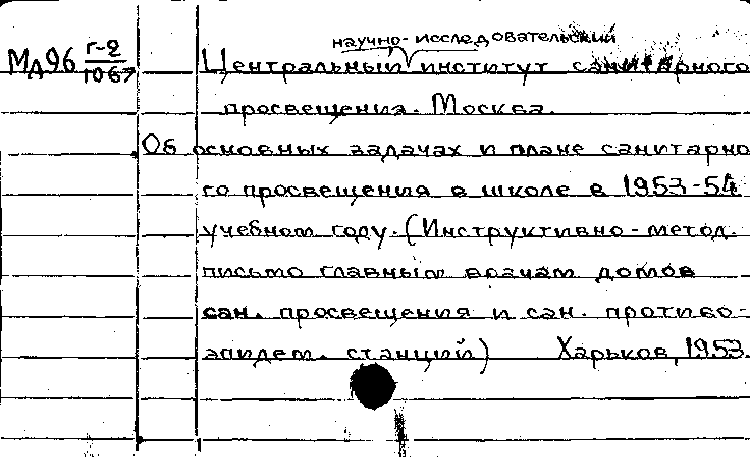 научно-исследовательский
МА96 Г-2/1067 Центральный институт санитарного
просвещения. Москва.
Об основных задачах и плане санитарно
го просвещения в школе в 1953-54
учебном году. (Инструктивно-метод.
письмо главным врачам домов
сан. просвещения и сан. противо-
эпидем. станций) Харьков, 1953.